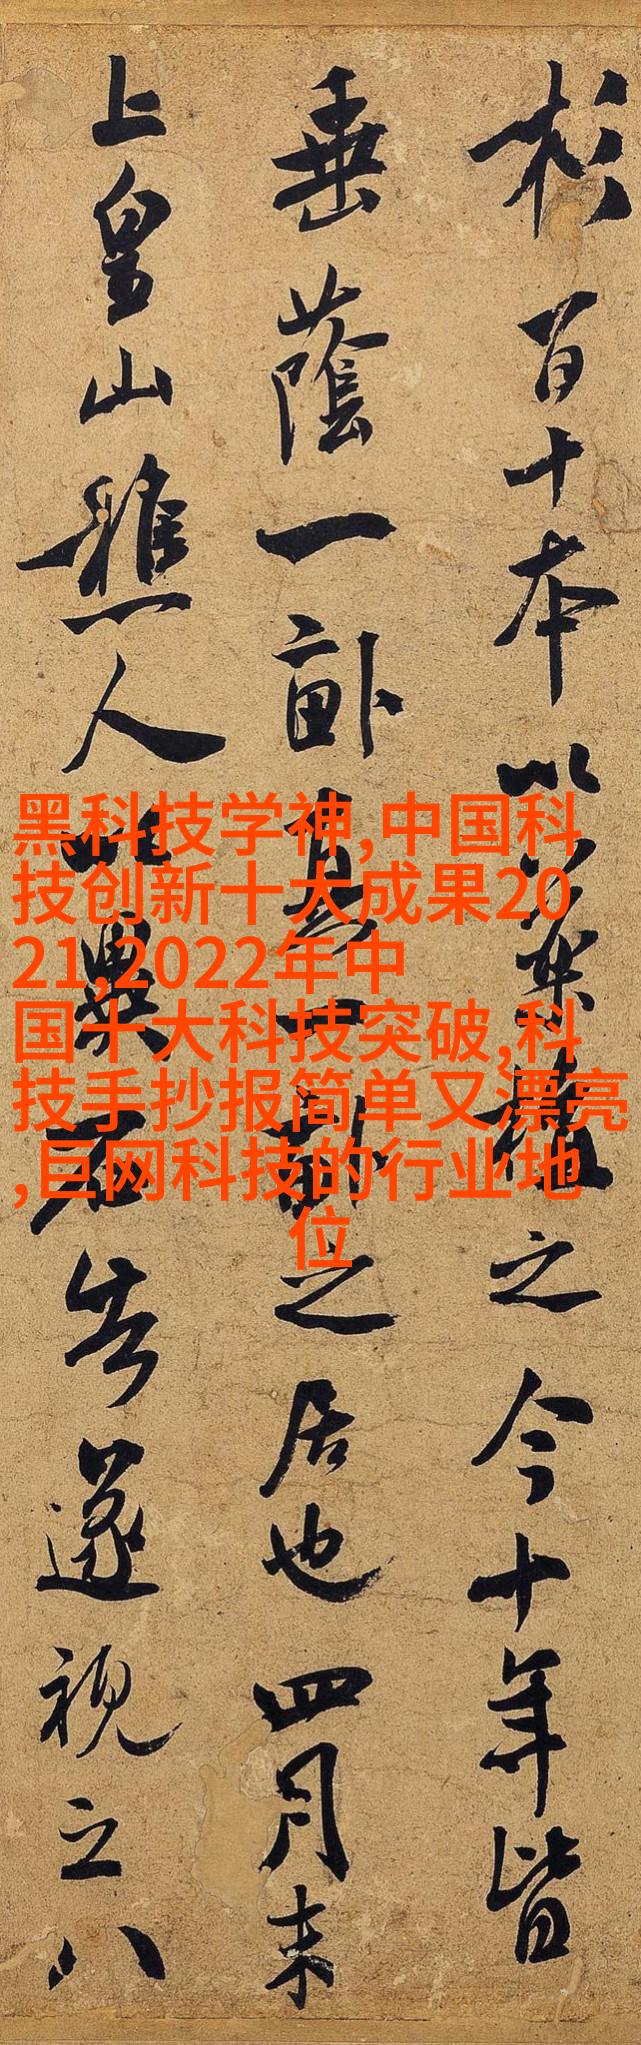 杉百十本以植之今十年皆
垂蔭一畝真一畝之居也四月末
上皇山樵人以異石告遂視之八
黑科技学神,中国科
技创新十大成果20
21,2022年中
国十大科技突破,科
技手抄报简单又漂亮
,巨网科技的行业地
位